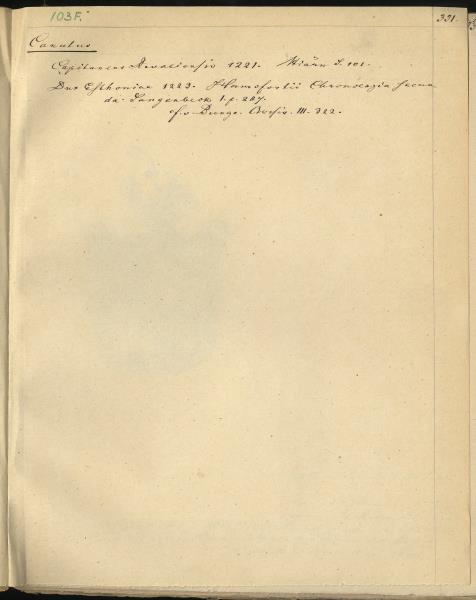 103 F.
331.
Canutus
Capitaneus Revaliensis 1221. Hiärn S. 101.
Dux Esthoniae 1223. Hamsfortii Chronologia secun
da. Langenbeck I. p. 287.
cf. v. Bunge. Archiv. III. 322.